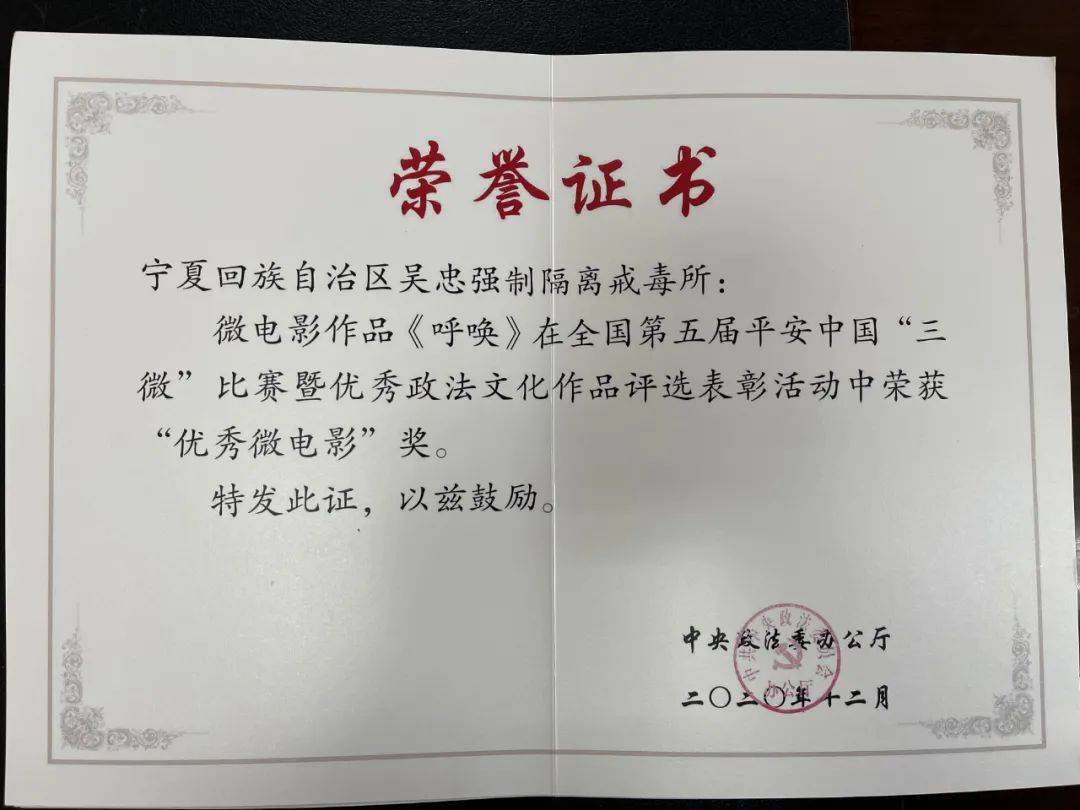 荣誉证书
宁夏回族自治区吴忠强制隔离戒毒所：
微电影作品《呼唤》在全国第五届平安中国“三
微”比赛暨优秀政法文化作品评选表彰活动中荣获
“优秀微电影”奖。
特发此证，以兹鼓励。
中央政法委办公厅
二〇二〇年十二月
中共中央政法委员会
办公厅